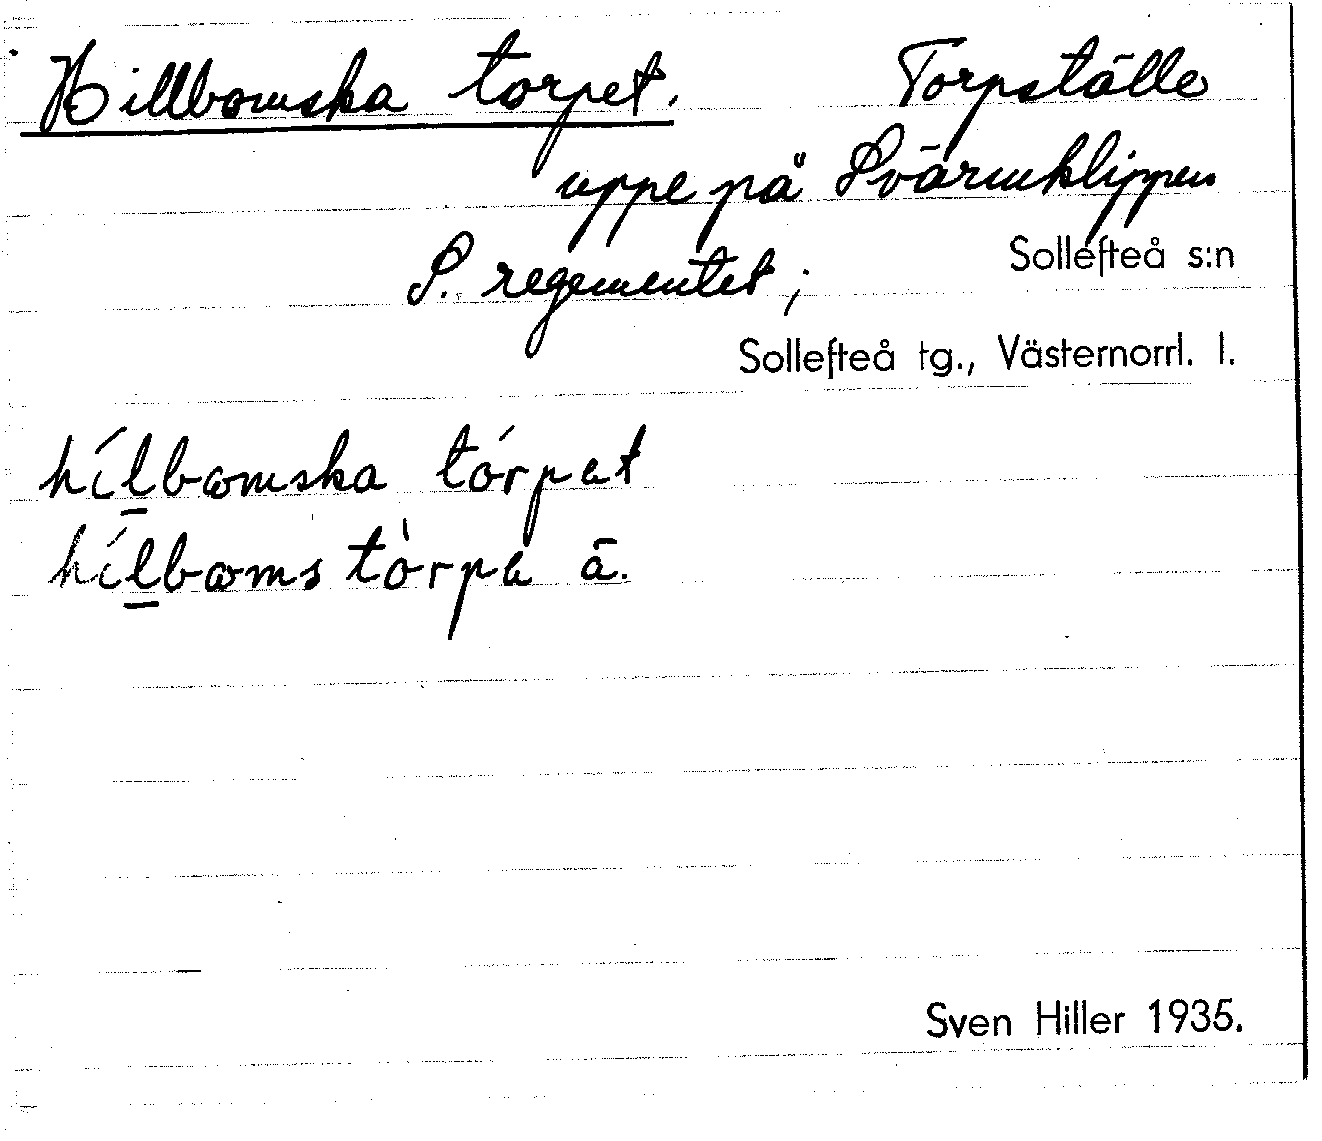 Hillbomska torpet. Torpställe
uppe på Svärmklippen
S. regementet;
Sollefteå s:n
Sollefteå tg., Västernorrl. l.
híl̲bomska tórpet
híl̲boms tòrpe ā.
Sven Hiller 1935.